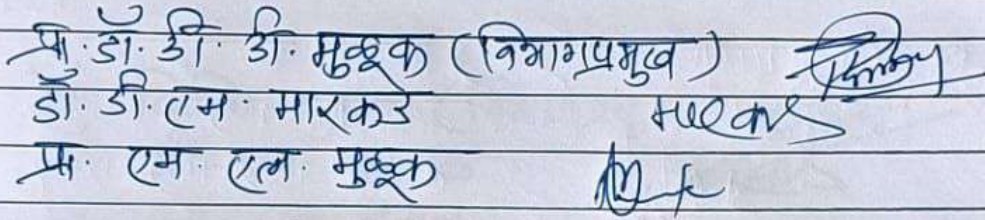 प्रा. डॉ. डी. डी. मुळूक (विभागप्रमुख)
डॉ. डी. एम. मारकडे
प्रा. एम. एल. मुळूक